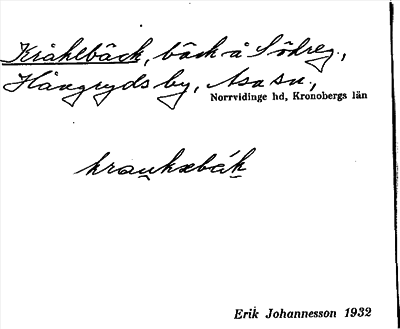 Kråhlbäck, bäck å Södreg.,
Hångryds by, Asa sn.,
Norrvidinge hd, Kronobergs län
kraukabäk
Erik Johannesson 1932